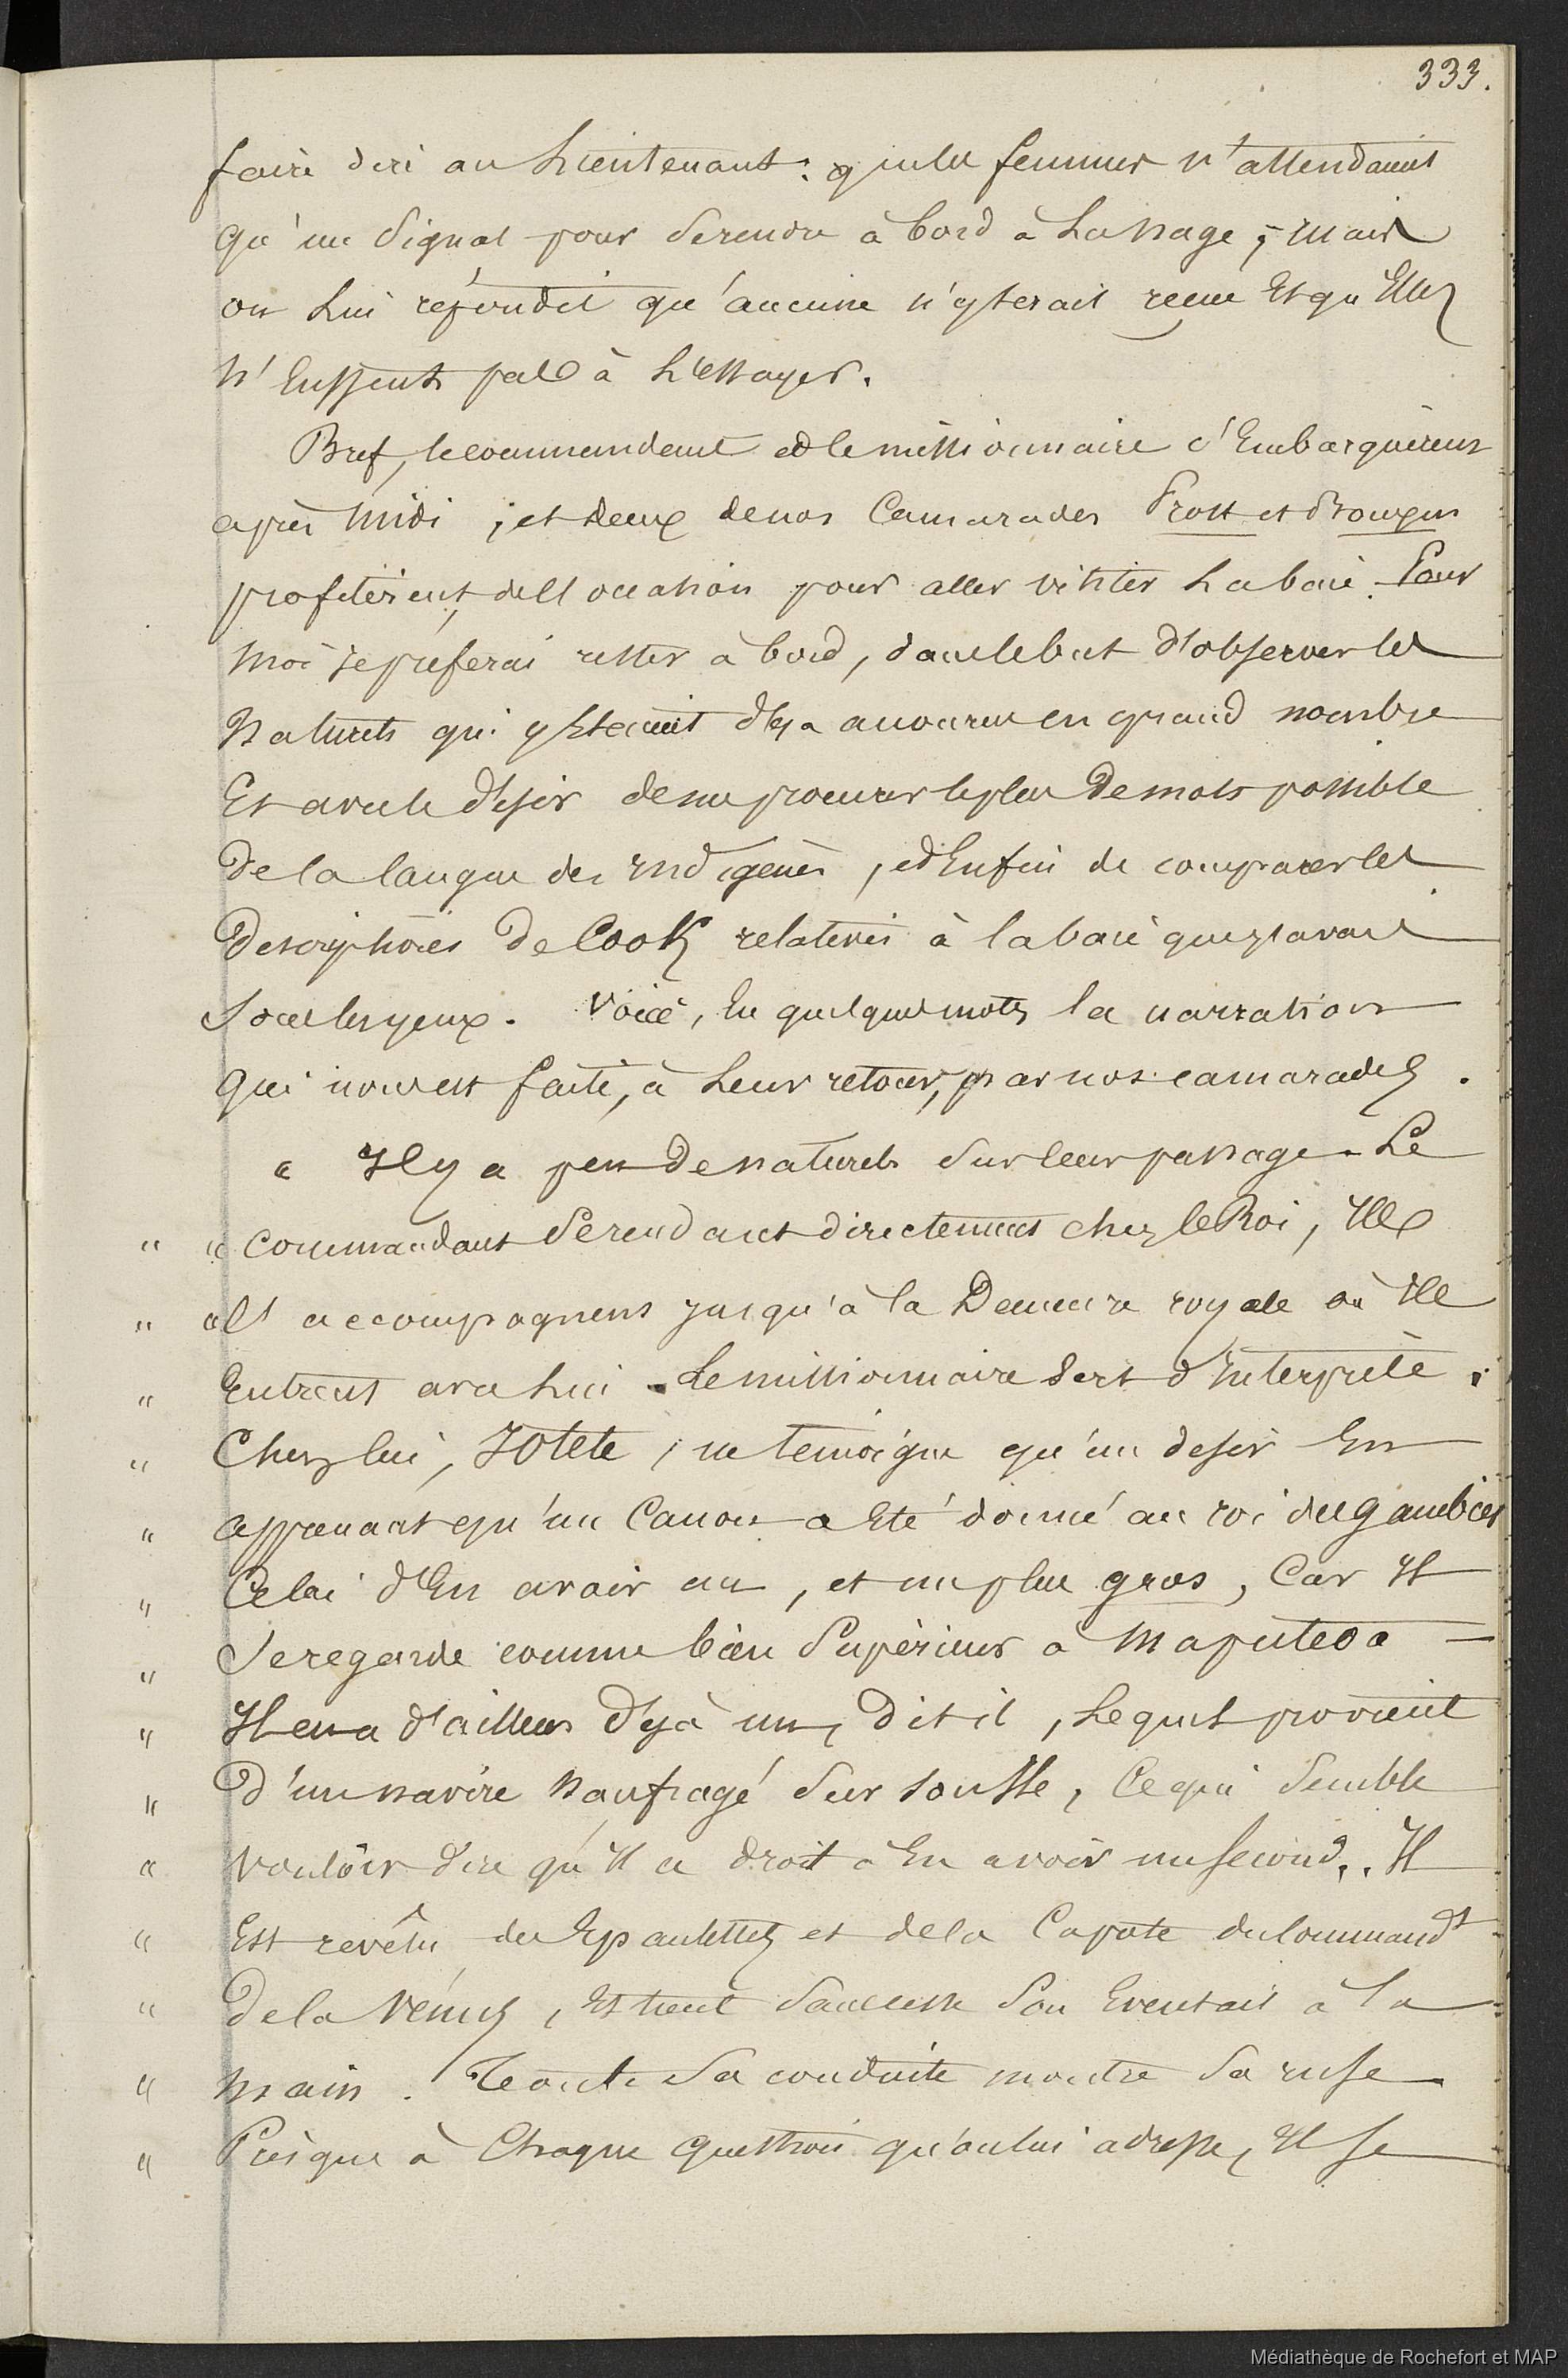 333.
faire dire au Lieutenant : que les femmes n'attendaient
qu'un signal pour se rendre à bord à la nage ; mais
on lui répondit qu'aucune n'y serait reçue et qu'elles
n'eussent pas à l'essayer.
Bref, le commandant et le missionnaire s'embarquèrent
après midi, et deux de nos camarades
profitèrent de l'occasion pour aller visiter la baie. Pour
moi je préférai rester à bord, dans le but d'observer les
naturels qui y étaient déjà accourus en grand nombre
et avec le désir de me procurer le plus de mots possible
de la langue des indigènes, et enfin de comparer les
descriptions de Cook relatives à la baie que j'avais
sous les yeux. Voici, en quelques mots la narration
qui nous est faite, à leur retour, par nos camarades.
" Il y a peu de naturels sur leur passage. Le
" " commandant se rendant directement chez le Roi, ils
" l'accompagnent jusqu'à la Demeure royale où ils
" entrent avec lui. Le missionnaire sert d'interprète.
" Chez lui, Iotété, ne témoigne qu'un désir en
" apprenant qu'un canon a été donné au roi des gambier
" celui d'en avoir un, et un plus gros, car il
" se regarde comme bien supérieur à Maputeoa —
" Il en a d'ailleurs déjà un, dit il, lequel provient
" d'un navire naufragé sur son île, ce qui semble
" vouloir dire qu'il a droit à en avoir un second.. Il
" est revêtu des épaulettes et de la capote du command^t
" de la Vénus, et tient sans cesse son éventail à la
" main. Toute sa conduite montre sa ruse.
" Presque à chaque question qu'on lui adresse, il se
Médiathèque de Rochefort et MAP